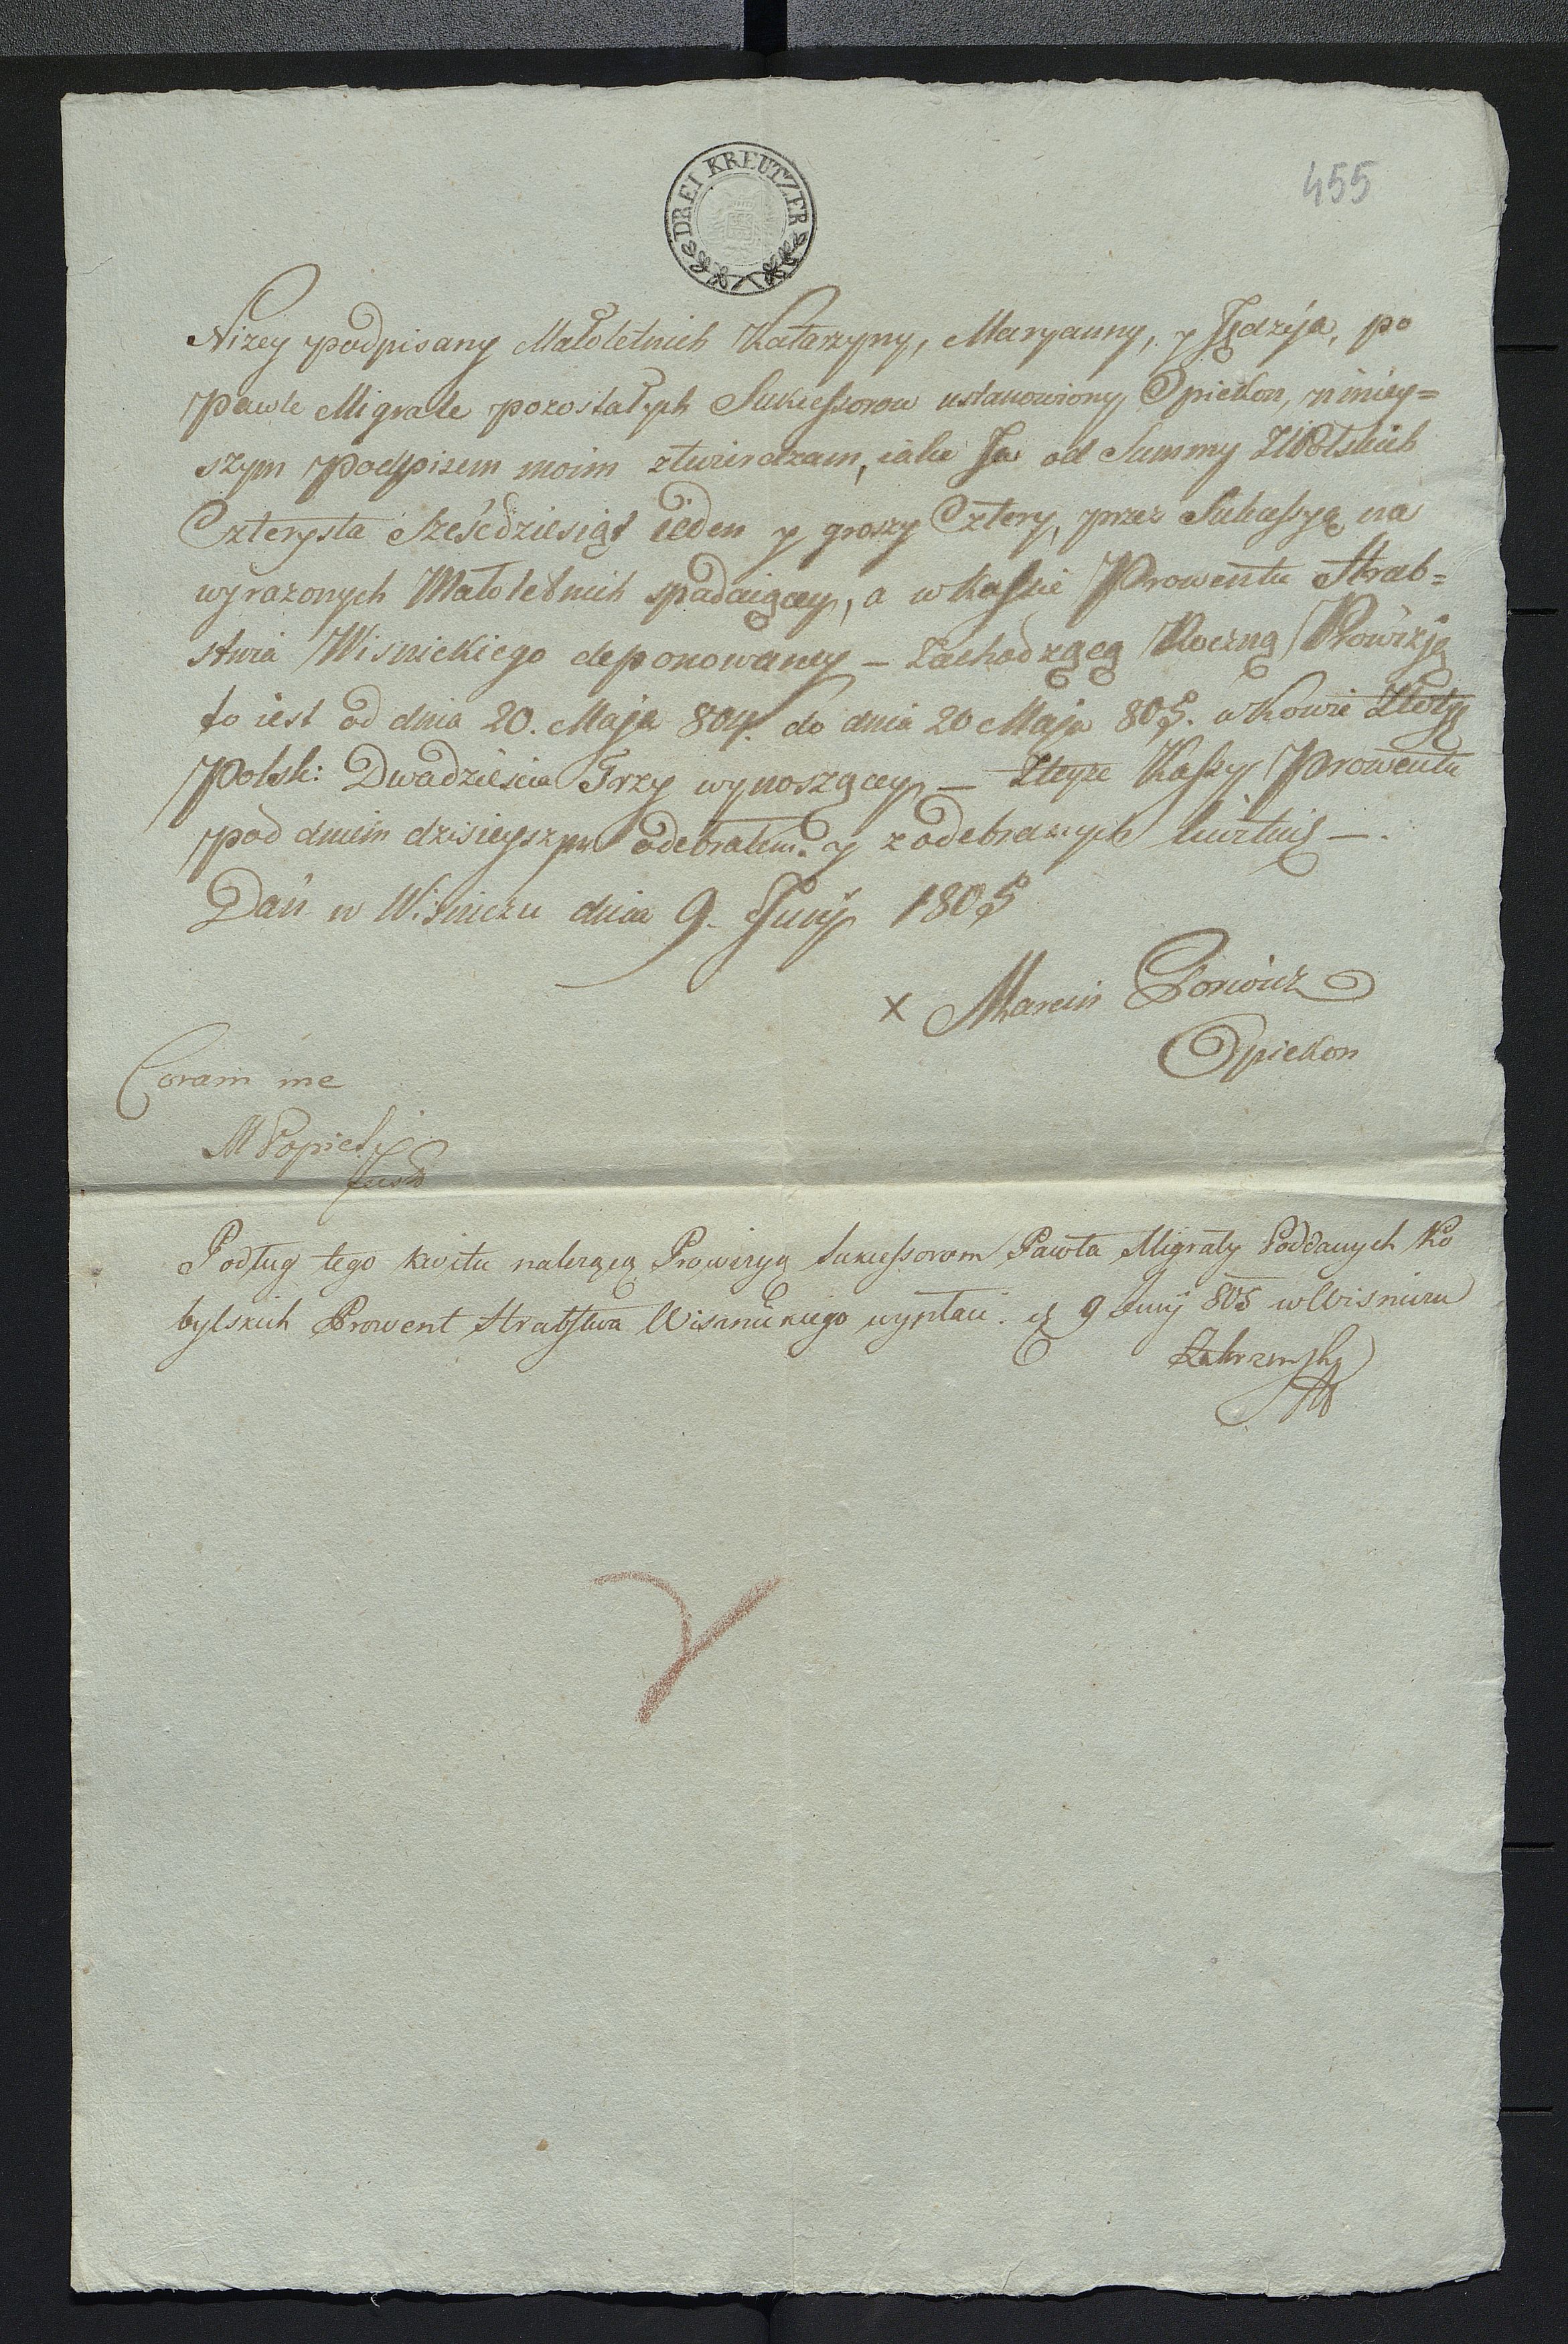 DREI KREUTZER
455
Nizey podpisany Małoletnich Katarzyny, Maryanny, y Jędrzeja, po
Pawle Migrale pozostałych Sukcessorow ustanowiony Opiekon, niniey=
szym Podpisem moim ztwierdzam, iako Ja od Summy ZłPolskich
Czterysta Sześćdziesiąt ieden y groszy Cztery, przez Sukcessyą na
wyrazonych Małoletnich spadaiącey, a w Kassie Prowentu Hrab=
stwa Wisnickiego deponowaney – Zachodzącą Roczną Prowizyę
to iest od dnia 20. Maja 804. do dnia 20 Maja 805. w Kowie Złoty
Polsk: Dwadziescia Trzy wynoszącey – Zteyze Kassy Prowentu
pod dniem dzisieyszym odebrałem. y z odebranych kwituię –.
Dań w Wisniczu dnia 9. Junÿ 1805
x Marcin
Opiekon
Coram me
M Popiel
Podług tego kwitu należącą Prowizyą Sukcessorom Pawła Migrały Poddanych Ko
bylskich Prowent Hrabstwa Wisnickiego wypłaci. d 9 Junÿ 805 w Wisniczu